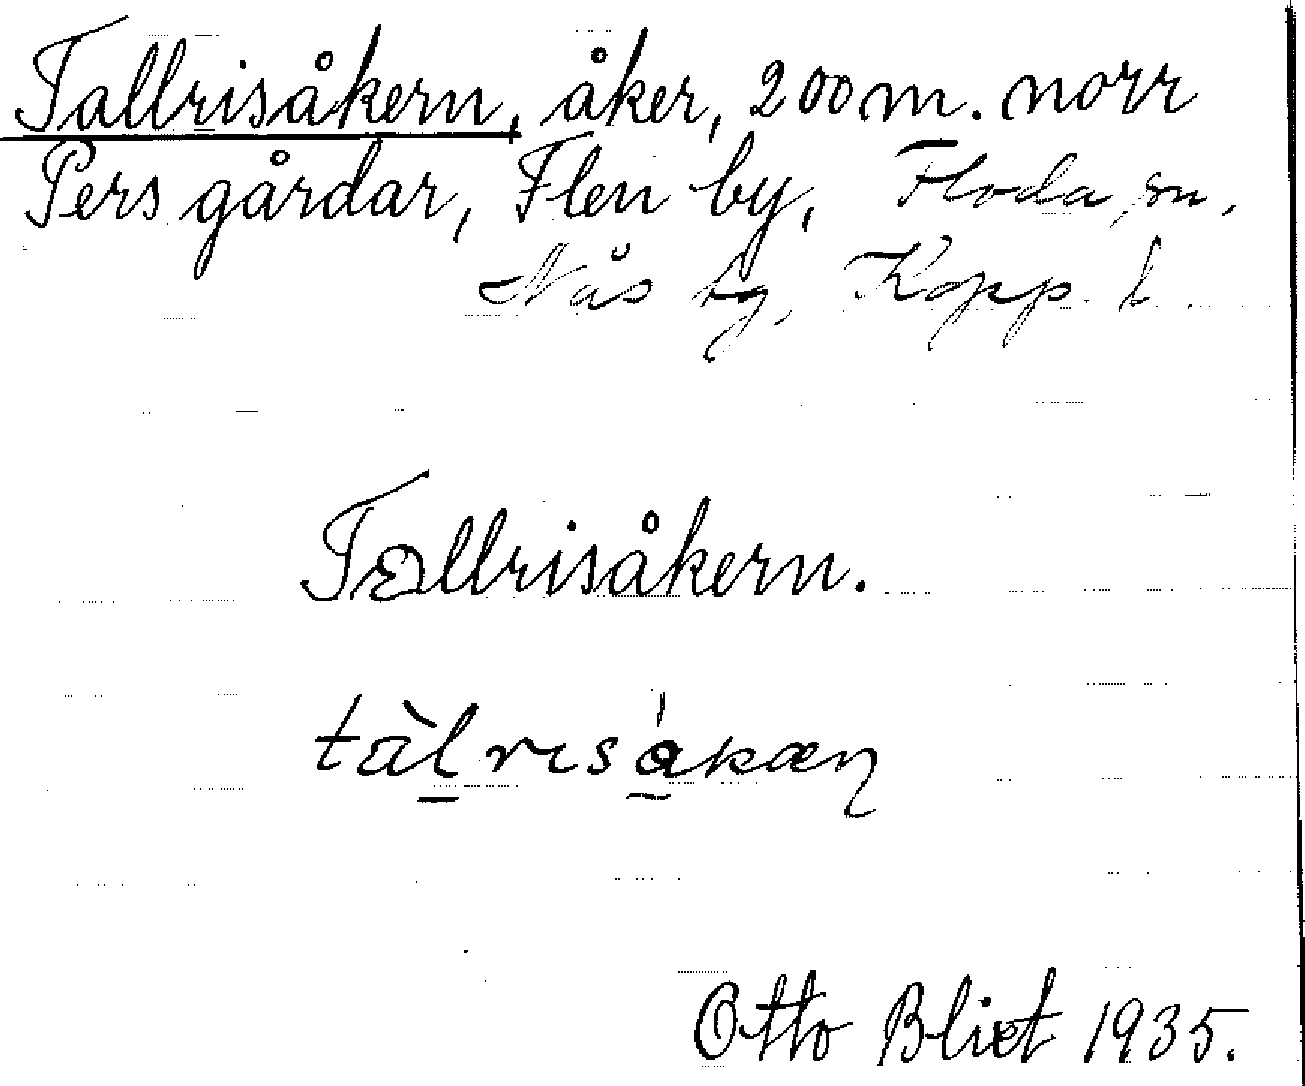 Tallrisåkern, åker, 200 m. norr
Pers gårdar, Flen by, Floda sn.
Nås tg, Kopp. l.
Tallrisåkern.
tàl̠rɪsa̠̍kæɳ
Otto Blixt 1935.